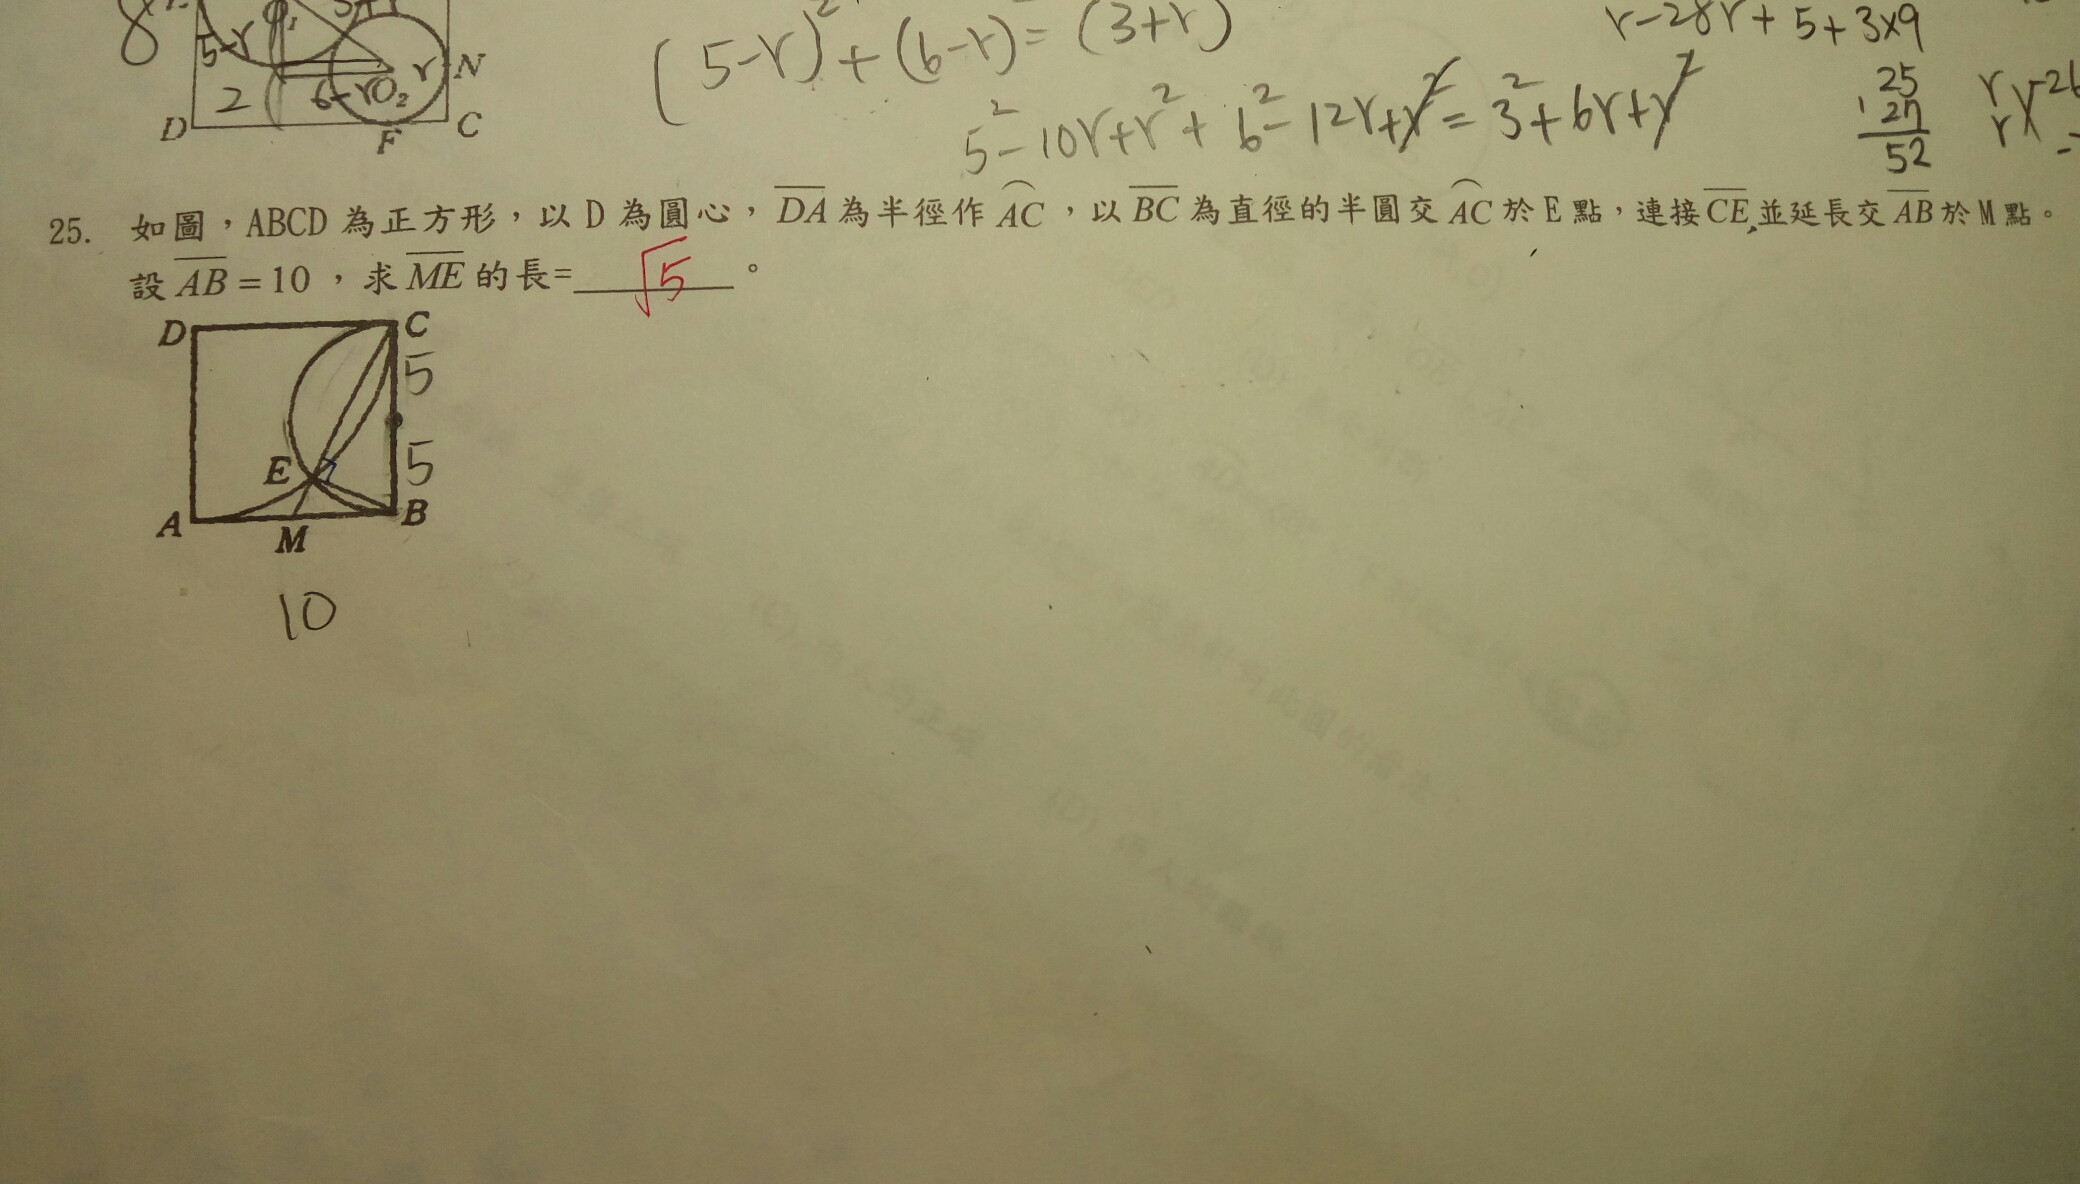 8
5-r
r N
2 6-r O₂
D F C
(5-r)²+(6-r)²=(3+r)
5²-10r+r²+6²-12r+r²=3²+6r+r²
r-28r+5+3×9
25
27
52
r
r
25. 如圖，ABCD 為正方形，以 D 為圓心，DA 為半徑作 AC，以 BC 為直徑的半圓交 AC 於 E 點，連接 CE 並延長交 AB 於 M 點。
設 AB = 10，求 ME 的長= √5 。
D C
5
E 5
A B
M
10